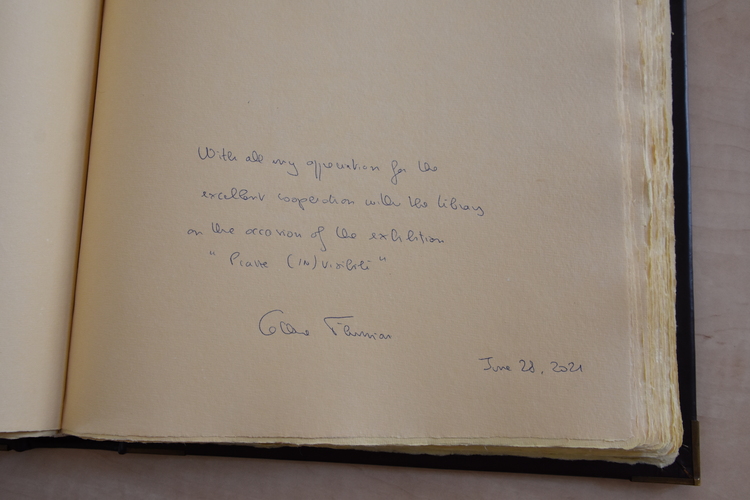 With all my appreciation for the
excellent cooperation with the library
on the occasion of the exhibition
" Piante (IN)visibili "
June 28, 2021